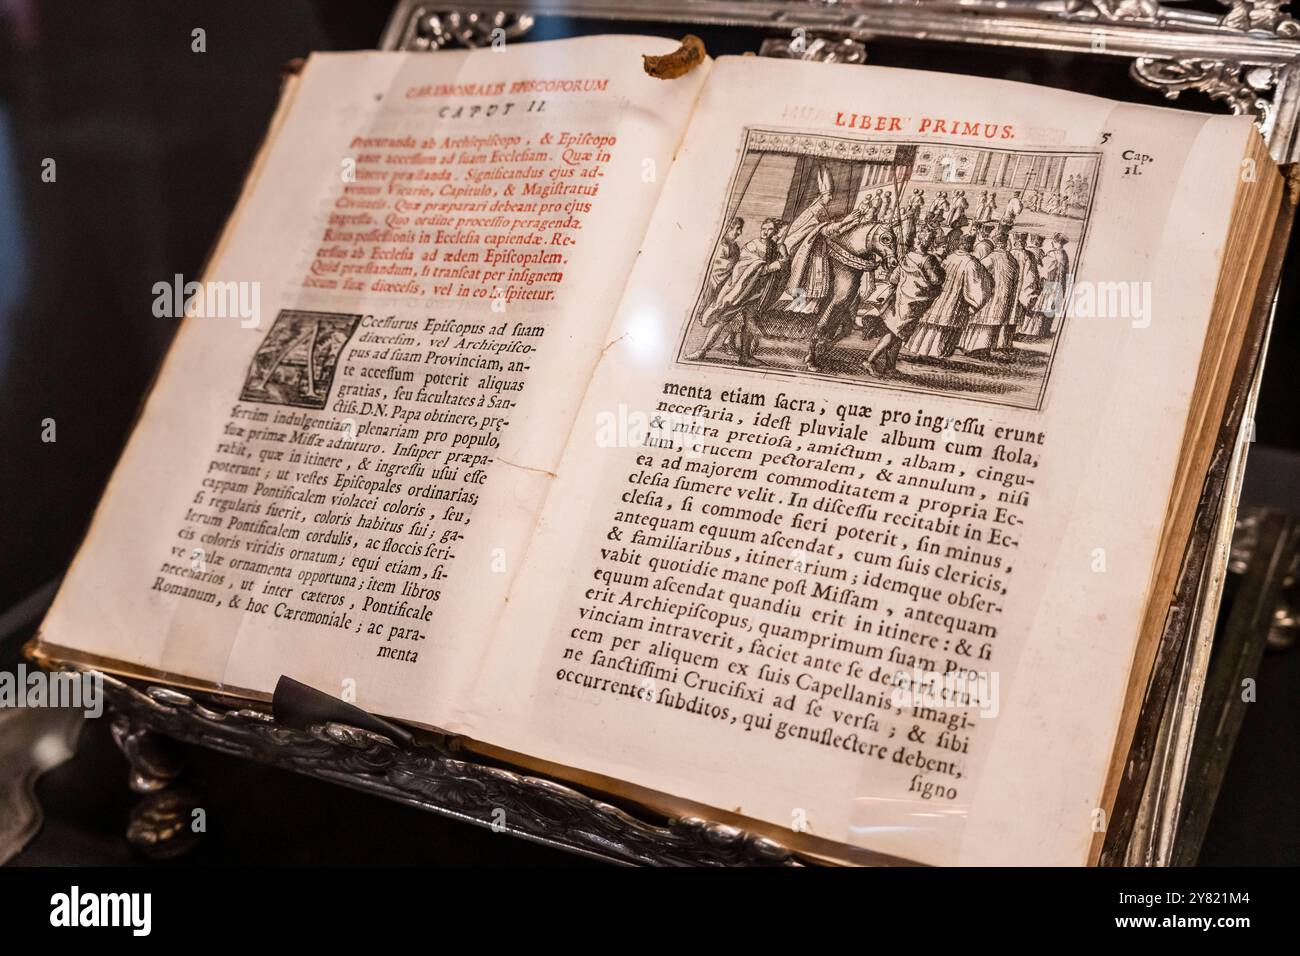 CAEREMONIALIS EPISCOPORUM
CAPUT II.
procuranda ab Archiepiſcopo, & Epiſcopo
ante acceſſum ad ſuam Eccleſiam. Quæ in
itinere præſtanda. Significandus ejus ad-
ventus Vicario, Capitulo, & Magiſtratui
Civitatis. Quæ præparari debeant pro ejus
ingreſſu. Quo ordine proceſſio peragenda.
Ritus poſſeſſionis in Eccleſia capiendæ. Re-
ceſſus ab Eccleſia ad ædem Epiſcopalem.
Quid præſtandum, ſi tranſeat per inſignem
locum ſuæ diœceſis, vel in eo hoſpitetur.
ACceſſurus Epiſcopus ad ſuam
diœceſim, vel Archiepiſco-
pus ad ſuam Provinciam, an-
te acceſſum poterit aliquas
gratias, ſeu facultates à San-
ctiſs. D.N. Papa obtinere, præ-
ſertim indulgentiam plenariam pro populo,
ſuæ primæ Miſſæ adfuturo. Inſuper præpa-
rabit, quæ in itinere, & ingreſſu uſui eſſe
poterunt; ut veſtes Epiſcopales ordinarias;
cappam Pontificalem violacei coloris, ſeu,
ſi regularis fuerit, coloris habitus ſui; ga-
lerum Pontificalem cordulis, ac floccis ſeri-
cis coloris viridis ornatum; equi etiam, ſi-
ve mulæ ornamenta opportuna; item libros
neceſſarios, ut inter cæteros, Pontificale
Romanum, & hoc Cæremoniale; ac para-
menta
LIBER PRIMUS.
5
Cap.
II.
menta etiam ſacra, quæ pro ingreſſu erunt
neceſſaria, ideſt pluviale album cum ſtola,
& mitra pretioſa, amictum, albam, cingu-
lum, crucem pectoralem, & annulum, niſi
ea ad majorem commoditatem a propria Ec-
cleſia ſumere velit. In diſceſſu recitabit in Ec-
cleſia, ſi commode fieri poterit, ſin minus,
antequam equum aſcendat, cum ſuis clericis,
& familiaribus, itinerarium; idemque obſer-
vabit quotidie mane poſt Miſſam, antequam
equum aſcendat quandiu erit in itinere: & ſi
erit Archiepiſcopus, quamprimum ſuam Pro-
vinciam intraverit, faciet ante ſe deferri cru-
cem per aliquem ex ſuis Capellanis, imagi-
ne ſanctiſſimi Crucifixi ad ſe verſa; & ſibi
occurrentes ſubditos, qui genuflectere debent,
ſigno
alamy
Image ID: 2Y821M4
www.alamy.com